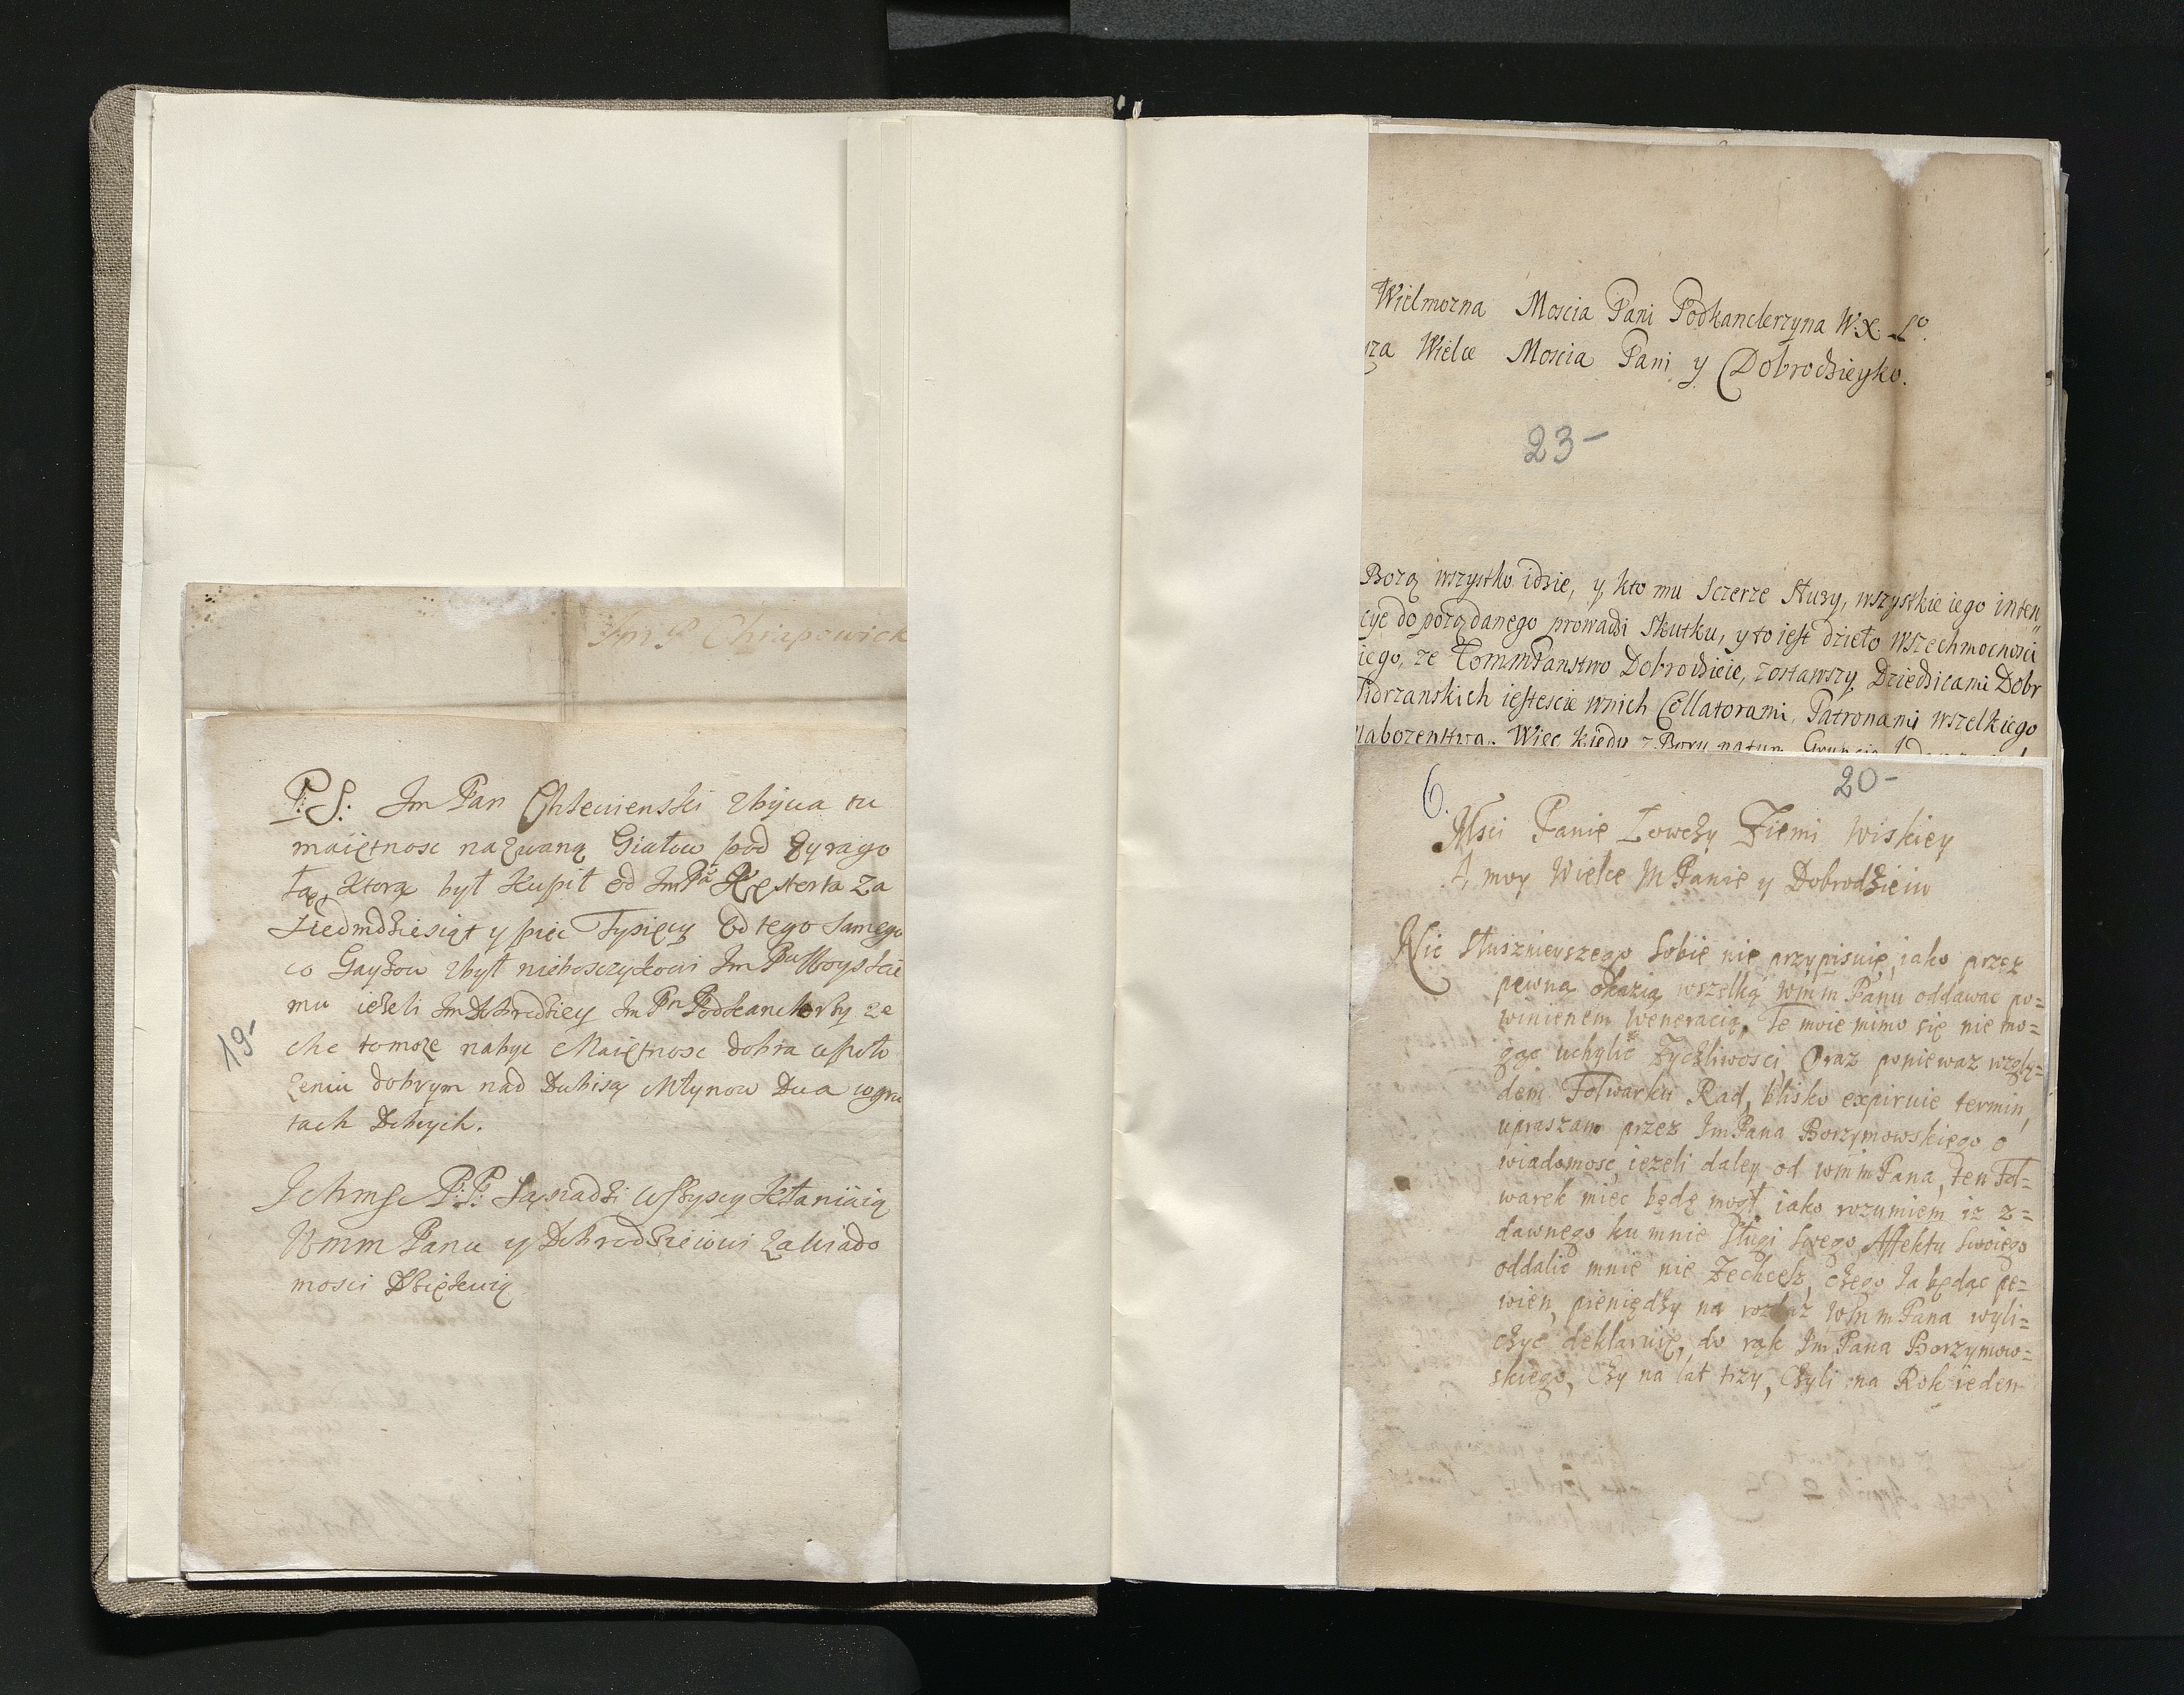 Im P Chrapowick
P: S: Im Pan Chlewienski zbywa tu
maiętnosc nazwaną Giałow pod Eyrago
łą, ktorą był kupił od ImPa Kęsterta za
siedmdziesiąt y pięc Tysięcy od tego samego
co Gayżow zbył nieboszczykowi Im Pnu
mu ieżeli Im Dobrodziey Im Pn Podkanclerzy ze
che tomoze nabyc Maiętnosc dobra w poło
zeniu dobrym nad Dubisą Młynow Dwa w gru
tach Dobrych.
19-
Ichmsc P:P: Sąsiadzi wszyscy kłaniaią
Wmm Panu y Dobrodzieiowi za wiado
mosci dziękuią
Wielmozna Moscia Pani Podkanclerzyna W.X. Lo.
sza Wielce Moscia Pani y Dobrodzieyko.
23-
Bozą wszystko idzie, y kto mu sczerze służy, wszystkie iego inten
cye do pozą danego prowadzi skutku, y to iest dzieło wszechmocnosci
iego, ze WmmPanstwo Dobrodzieie, zostawszy Dziedzicami Dobr
Tidrzanskich iestescie wnich Collatorami, Patronami wszelkiego
nabozenstwa. Więc kiedy z Boru
6.
20-
Msci Panie Łowczy Ziemi Wiskiey
A, moy Wielce M Panie y Dobrodzieiu
Nic słusznieyszego sobie nie przypisuię, iako przez
pewną okazią wszelką wmm Panu oddawac po=
winienem Weneracią, Te moie mimo się nie mo=
gąc uchylic życzliwosci, Oraz poniewaz wzglę=
dem Folwarku Rad, blisko expiruie termin,
upraszam przez ImPana Borzymowskiego o
wiadomosc, iezeli daley od wmmPana, ten Fol=
warek miec będę mogł iako rozumiem iz z=
dawnego ku mnie sługi swego Affektu swoiego
oddalic mnie nie Zechcesz, czego Ja będąc pe=
wien, pieniędzy na rozkaz wmmPana wyli=
czyc deklaruię, do rąk Im Pana Borzymow=
skiego, Czy na lat trzy, Czyli na Rok ieden